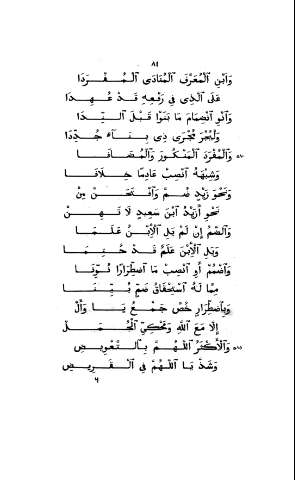 ٨١
وَٱبْنِ ٱلْمُعَرَّفَ ٱلْمُنَادَى ٱلْمُفْرَدَا
عَلَى ٱلَّذِى فِى رَفْعِهِ قَدْ عُهِدَا
وَٱنْوِ ٱنْضِمَامَ مَا بَنَوْا قَبْلَ ٱلنِّدَا
وَلْيُجْرَ مُجْرَى ذِى بِنَآءٍ جُدِّدَا
وَٱلْمُفْرَدَ ٱلْمَنْكُورَ وَٱلْمُضَافَا ٥٨٠
وَشِبْهَهُ ٱنْصِبْ عَادِمًا خِلَافَا
وَنَحْوَ زَيْدٍ ضُمَّ وَٱفْتَحَنَّ مِنْ
نَحْوِ أَزَيْدُ ٱبْنَ سَعِيدٍ لَا تَهِنْ
وَٱلضَّمُّ إِنْ لَمْ يَلِ ٱلْٱِبْنُ عَلَمَا
وَيَلِ ٱلْٱِبْنَ عَلَمٌ قَدْ حُتِمَا
وَٱضْمُمْ أَوِ ٱنْصِبْ مَا ٱضْطِرَارًا نُوِّنَا
مِمَّا لَهُ ٱسْتِحْقَاقُ ضَمٍّ بُيِّنَا
وَبِٱضْطِرَارٍ خُصَّ جَمْعُ يَا وَأَلْ
إِلَّا مَعَ ٱللّٰهِ وَمَحْكِىِّ ٱلْجُمَلْ
وَٱلْأَكْثَرُ ٱللّٰهُمَّ بِٱلتَّعْوِيضِ ٥٨٥
وَشَذَّ يَا ٱللّٰهُمَّ فِى ٱلْقَرِيضِ
٦